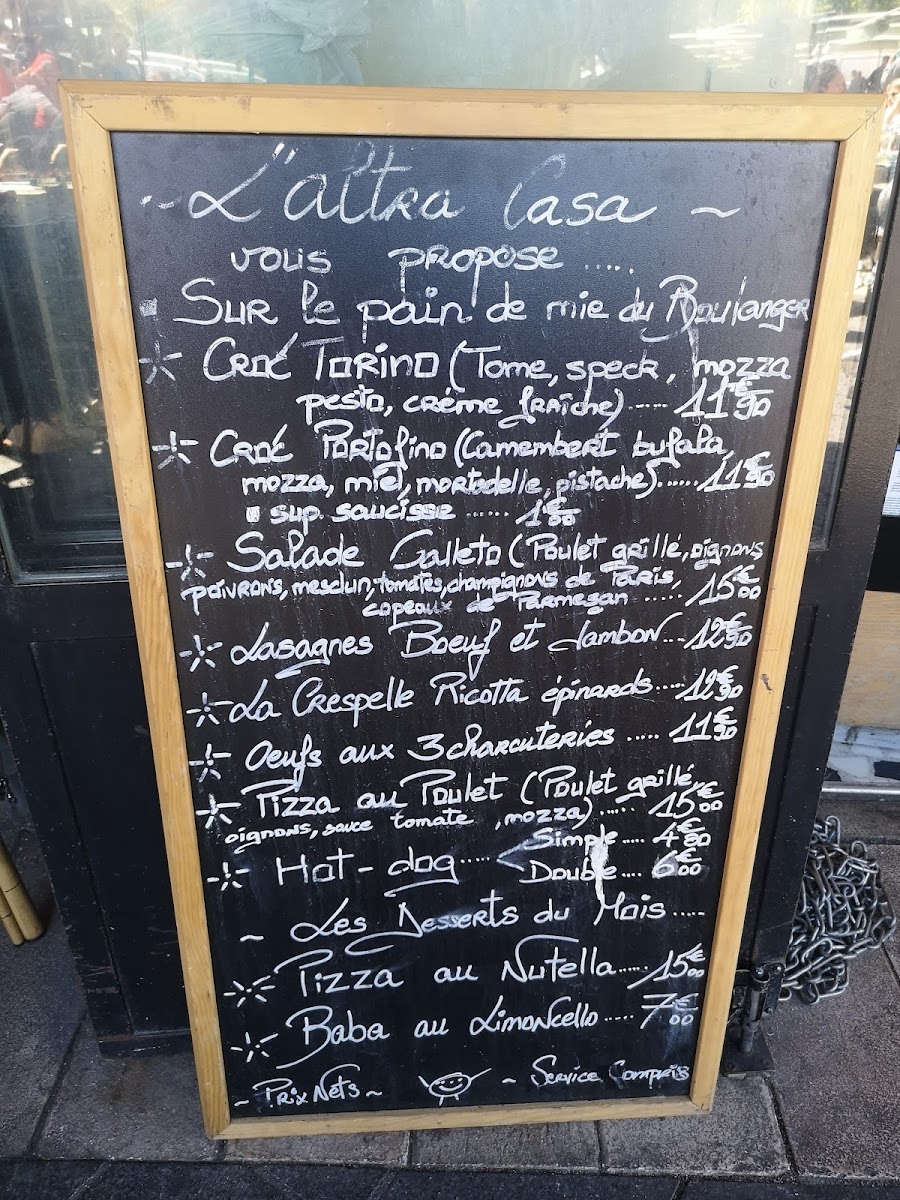 ~ L'altra Casa ~
vous propose .....
Sur le pain de mie du Boulanger
Croc Torino (Tome, speck, mozza
pesto, crème fraîche) ..... 11€90
Croc Portofino (Camembert bufala,
mozza, miel, mortadelle, pistache) ...... 11€90
sup. saucisse ...... 1€00
Salade Galleto (Poulet grillé, oignons
poivrons, mesclun, tomates, champignons de Paris,
copeaux de Parmesan ..... 15€00
Lasagnes Boeuf et Jambon ... 12€90
La Crespelle Ricotta épinards ..... 12€90
Oeufs aux 3 charcuteries ..... 11€90
Pizza au Poulet (Poulet grillé
oignons, sauce tomate, mozza) ..... 15€00
Simple .... 4€80
Hot-dog .....
Double .... 6€00
~ Les Desserts du Mois .....
Pizza au Nutella ..... 15€00
Baba au Limoncello ..... 7€00
~ Prix Nets ~ ~ Service Compris